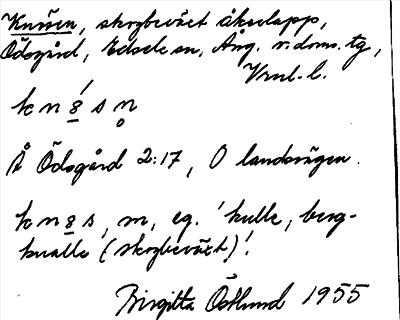 Knösen, skogbeväxt åkerlapp,
Ödsgård, Edsele sn, Ång. v. doms. tg,
Vrml. l.
k n ø s n
Å Ödsgård 2:17, O landsvägen.
k n ø s, m, eg. 'kulle, berg-
knalle (skogbeväxt)'.
Birgitta Östlund 1955